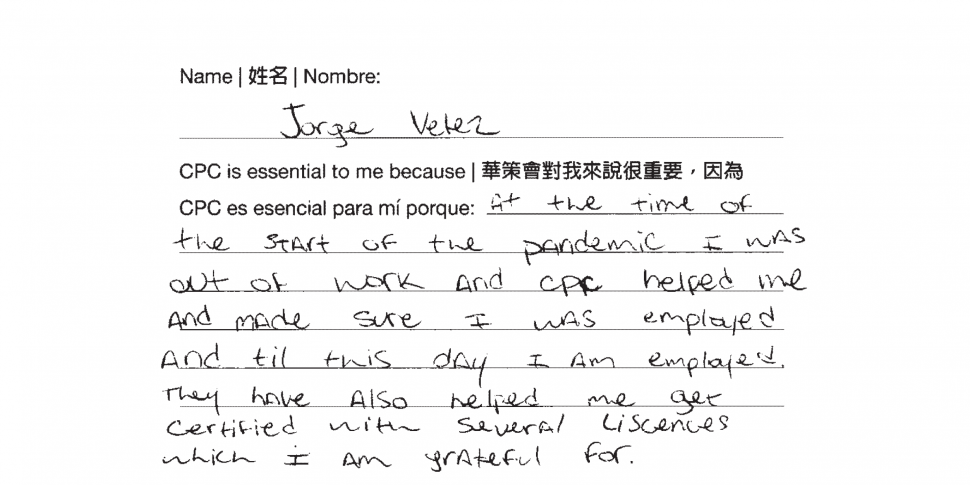 Name | 姓名 | Nombre:
Jorge Velez
CPC is essential to me because | 華策會對我來說很重要，因為
CPC es esencial para mí porque: At the time of
the start of the pandemic I was
out of work and CPC helped me
And made sure I was employed
And til this day I Am employed.
They have Also helped me get
certified with several Liscences
which I Am grateful for.